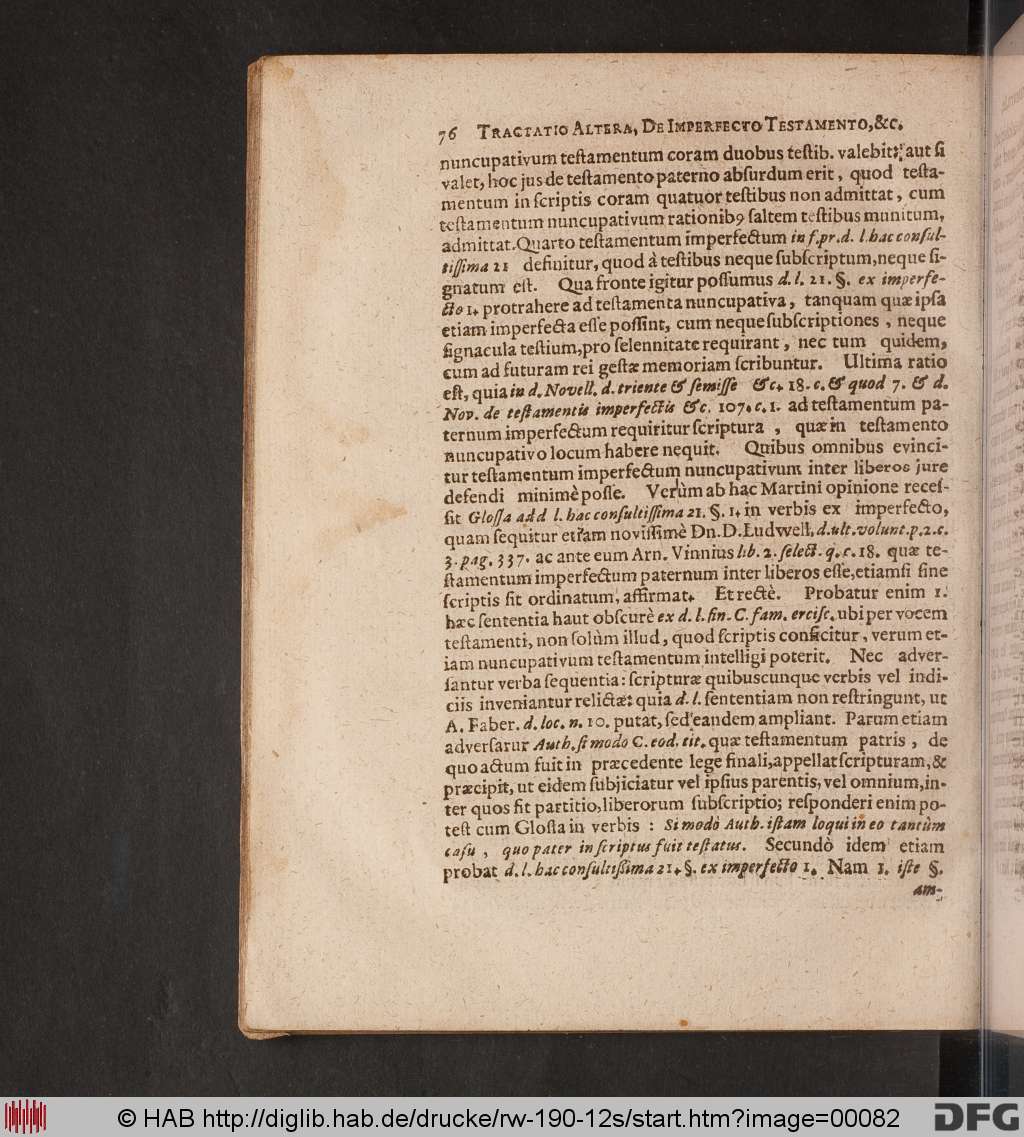 76 TRACTATIO ALTERA, DE IMPERFECTO TESTAMENTO, &C.
nuncupativum teſtamentum coram duobus teſtib. valebit: aut ſi
valet, hoc jus de teſtamento paterno abſurdum erit, quod teſta-
mentum in ſcriptis coram quatuor teſtibus non admittat, cum
teſtamentum nuncupativum rationibꝰ ſaltem teſtibus munitum,
admittat. Quarto teſtamentum imperfectum in f. pr. d. l. hac conſul-
tiſſima 21 definitur, quod à teſtibus neque ſubſcriptum, neque ſi-
gnatum eſt. Qua fronte igitur poſſumus d. l. 21. §. ex imperfe-
cto 1. protrahere ad teſtamenta nuncupativa, tanquam quæ ipſa
etiam imperfecta eſſe poſſint, cum neque ſubſcriptiones, neque
ſignacula teſtium, pro ſelennitate requirant, nec tum quidem,
cum ad futuram rei geſtæ memoriam ſcribuntur. Ultima ratio
eſt, quia in d. Novell. d. triente & ſemiſſe &c. 18. c. & quod 7. & d.
Nov. de teſtamentis imperfectis &c. 107. c. 1. ad teſtamentum pa-
ternum imperfectum requiritur ſcriptura, quæ in teſtamento
nuncupativo locum habere nequit. Quibus omnibus evinci-
tur teſtamentum imperfectum nuncupativum inter liberos jure
defendi minimè poſſe. Verùm ab hac Martini opinione receſ-
ſit Gloſſa ad d l. hac conſultiſſima 21. §. 1. in verbis ex imperfecto,
quam ſequitur etiam noviſſimè Dn. D. Ludwell. d. ult. volunt. p. 2. c.
3. pag. 337. ac ante eum Arn. Vinnius lib. 2. ſelect. q. c. 18. quæ te-
ſtamentum imperfectum paternum inter liberos eſſe, etiamſi ſine
ſcriptis ſit ordinatum, affirmat. Et rectè. Probatur enim 1.
hæc ſententia haut obſcurè ex d. l. fin. C. fam. erciſc. ubi per vocem
teſtamenti, non ſolùm illud, quod ſcriptis conficitur, verum et-
iam nuncupativum teſtamentum intelligi poterit. Nec adver-
ſantur verba ſequentia: ſcripturæ quibuscunque verbis vel indi-
ciis inveniantur relictæ: quia d. l. ſententiam non reſtringunt, ut
A. Faber. d. loc. n. 10. putat, ſed eandem ampliant. Parum etiam
adverſatur Auth. ſi modo C. eod. tit. quæ teſtamentum patris, de
quo actum fuit in præcedente lege finali, appellat ſcripturam, &
præcipit, ut eidem ſubjiciatur vel ipſius parentis, vel omnium, in-
ter quos fit partitio, liberorum ſubſcriptio; reſponderi enim po-
teſt cum Gloſſa in verbis: Si modò Auth. iſtam loqui in eo tantùm
caſu, quo pater in ſcriptus fuit teſtatus. Secundò idem etiam
probat d. l. hac conſultiſſima 21. §. ex imperfecto 1. Nam 1. iſte §.
am-
© HAB http://diglib.hab.de/drucke/rw-190-12s/start.htm?image=00082
DFG